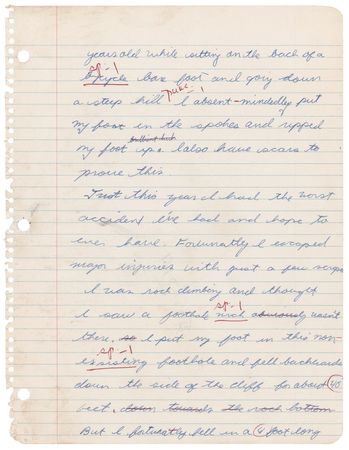 years old while sitting on the back of a
sp-1
bycycle bare foot and going down
punc-1
a steep hill I absent-mindedly put
my foot in the spokes and ripped
my foot up. I also have scars to
prove this.
Just this year I had the worst
accident I've had and hope to
ever have. Fortunatly I escaped
major injuries with just a few scrapes
I was rock climbing and thought
sp-1
I saw a foothole wich obviously wasn't
there, so I put my foot in this non-
sp-1
essisting foothole and fell backwards
down the side of the cliff for about 40
feet, down towards the rock bottom.
But I fortunatly fell in a 4 foot long